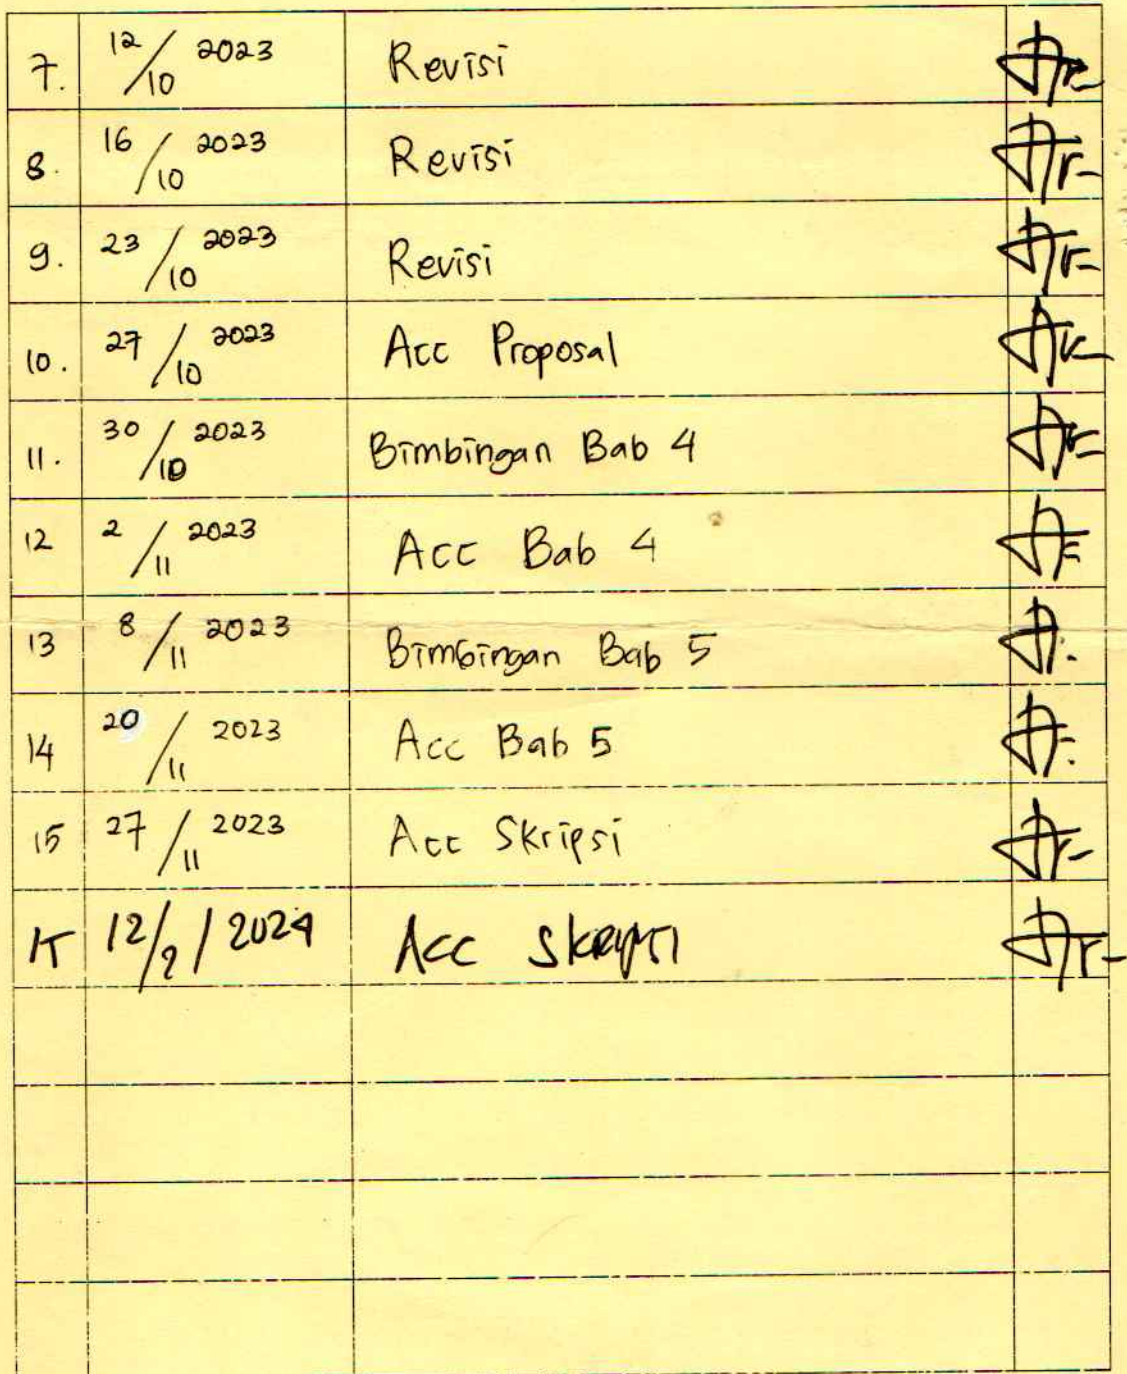 7. 12/10 2023 Revisi
8. 16/10 2023 Revisi
9. 23/10 2023 Revisi
10. 27/10 2023 Acc Proposal
11. 30/10 2023 Bimbingan Bab 4
12 2/11 2023 Acc Bab 4
13 8/11 2023 Bimbingan Bab 5
14 20/11 2023 Acc Bab 5
15 27/11 2023 Acc Skripsi
12/2/2024 Acc Skripsi